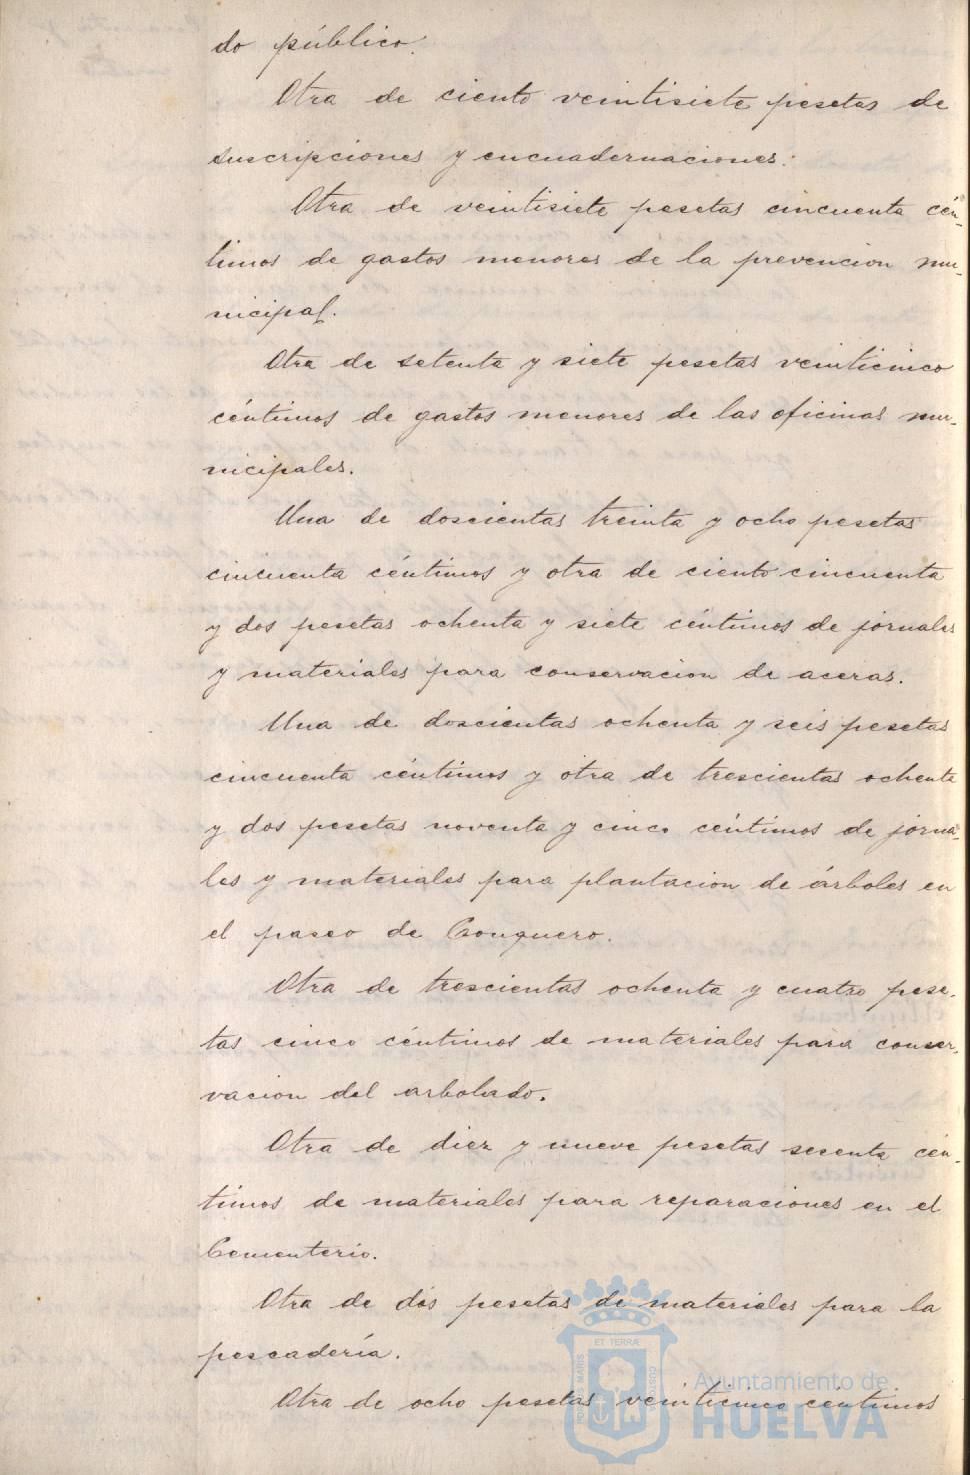 do público.
Otra de ciento veintisiete pesetas de
suscripciones y encuadernaciones.
Otra de veintisiete pesetas cincuenta cén-
timos de gastos menores de la prevencion mu-
nicipal.
Otra de setenta y siete pesetas veinticinco
céntimos de gastos menores de las oficinas mu-
nicipales.
Una de doscientas treinta y ocho pesetas
cincuenta céntimos y otra de ciento cincuenta
y dos pesetas ochenta y siete céntimos de jornales
y materiales para conservacion de aceras.
Una de doscientas ochenta y seis pesetas
cincuenta céntimos y otra de trescientas ochenta
y dos pesetas noventa y cinco céntimos de jorna-
les y materiales para plantacion de árboles en
el paseo de Conquero.
Otra de trescientas ochenta y cuatro pese-
tas cinco céntimos de materiales para conser-
vacion del arbolado.
Otra de diez y nueve pesetas sesenta cén-
timos de materiales para reparaciones en el
Cementerio.
Otra de dos pesetas de materiales para la
pescadería.
Otra de ocho pesetas veinticinco céntimos
ET TERRÆ
PORTUS MARIS
CUSTODIA
Ayuntamiento de
HUELVA